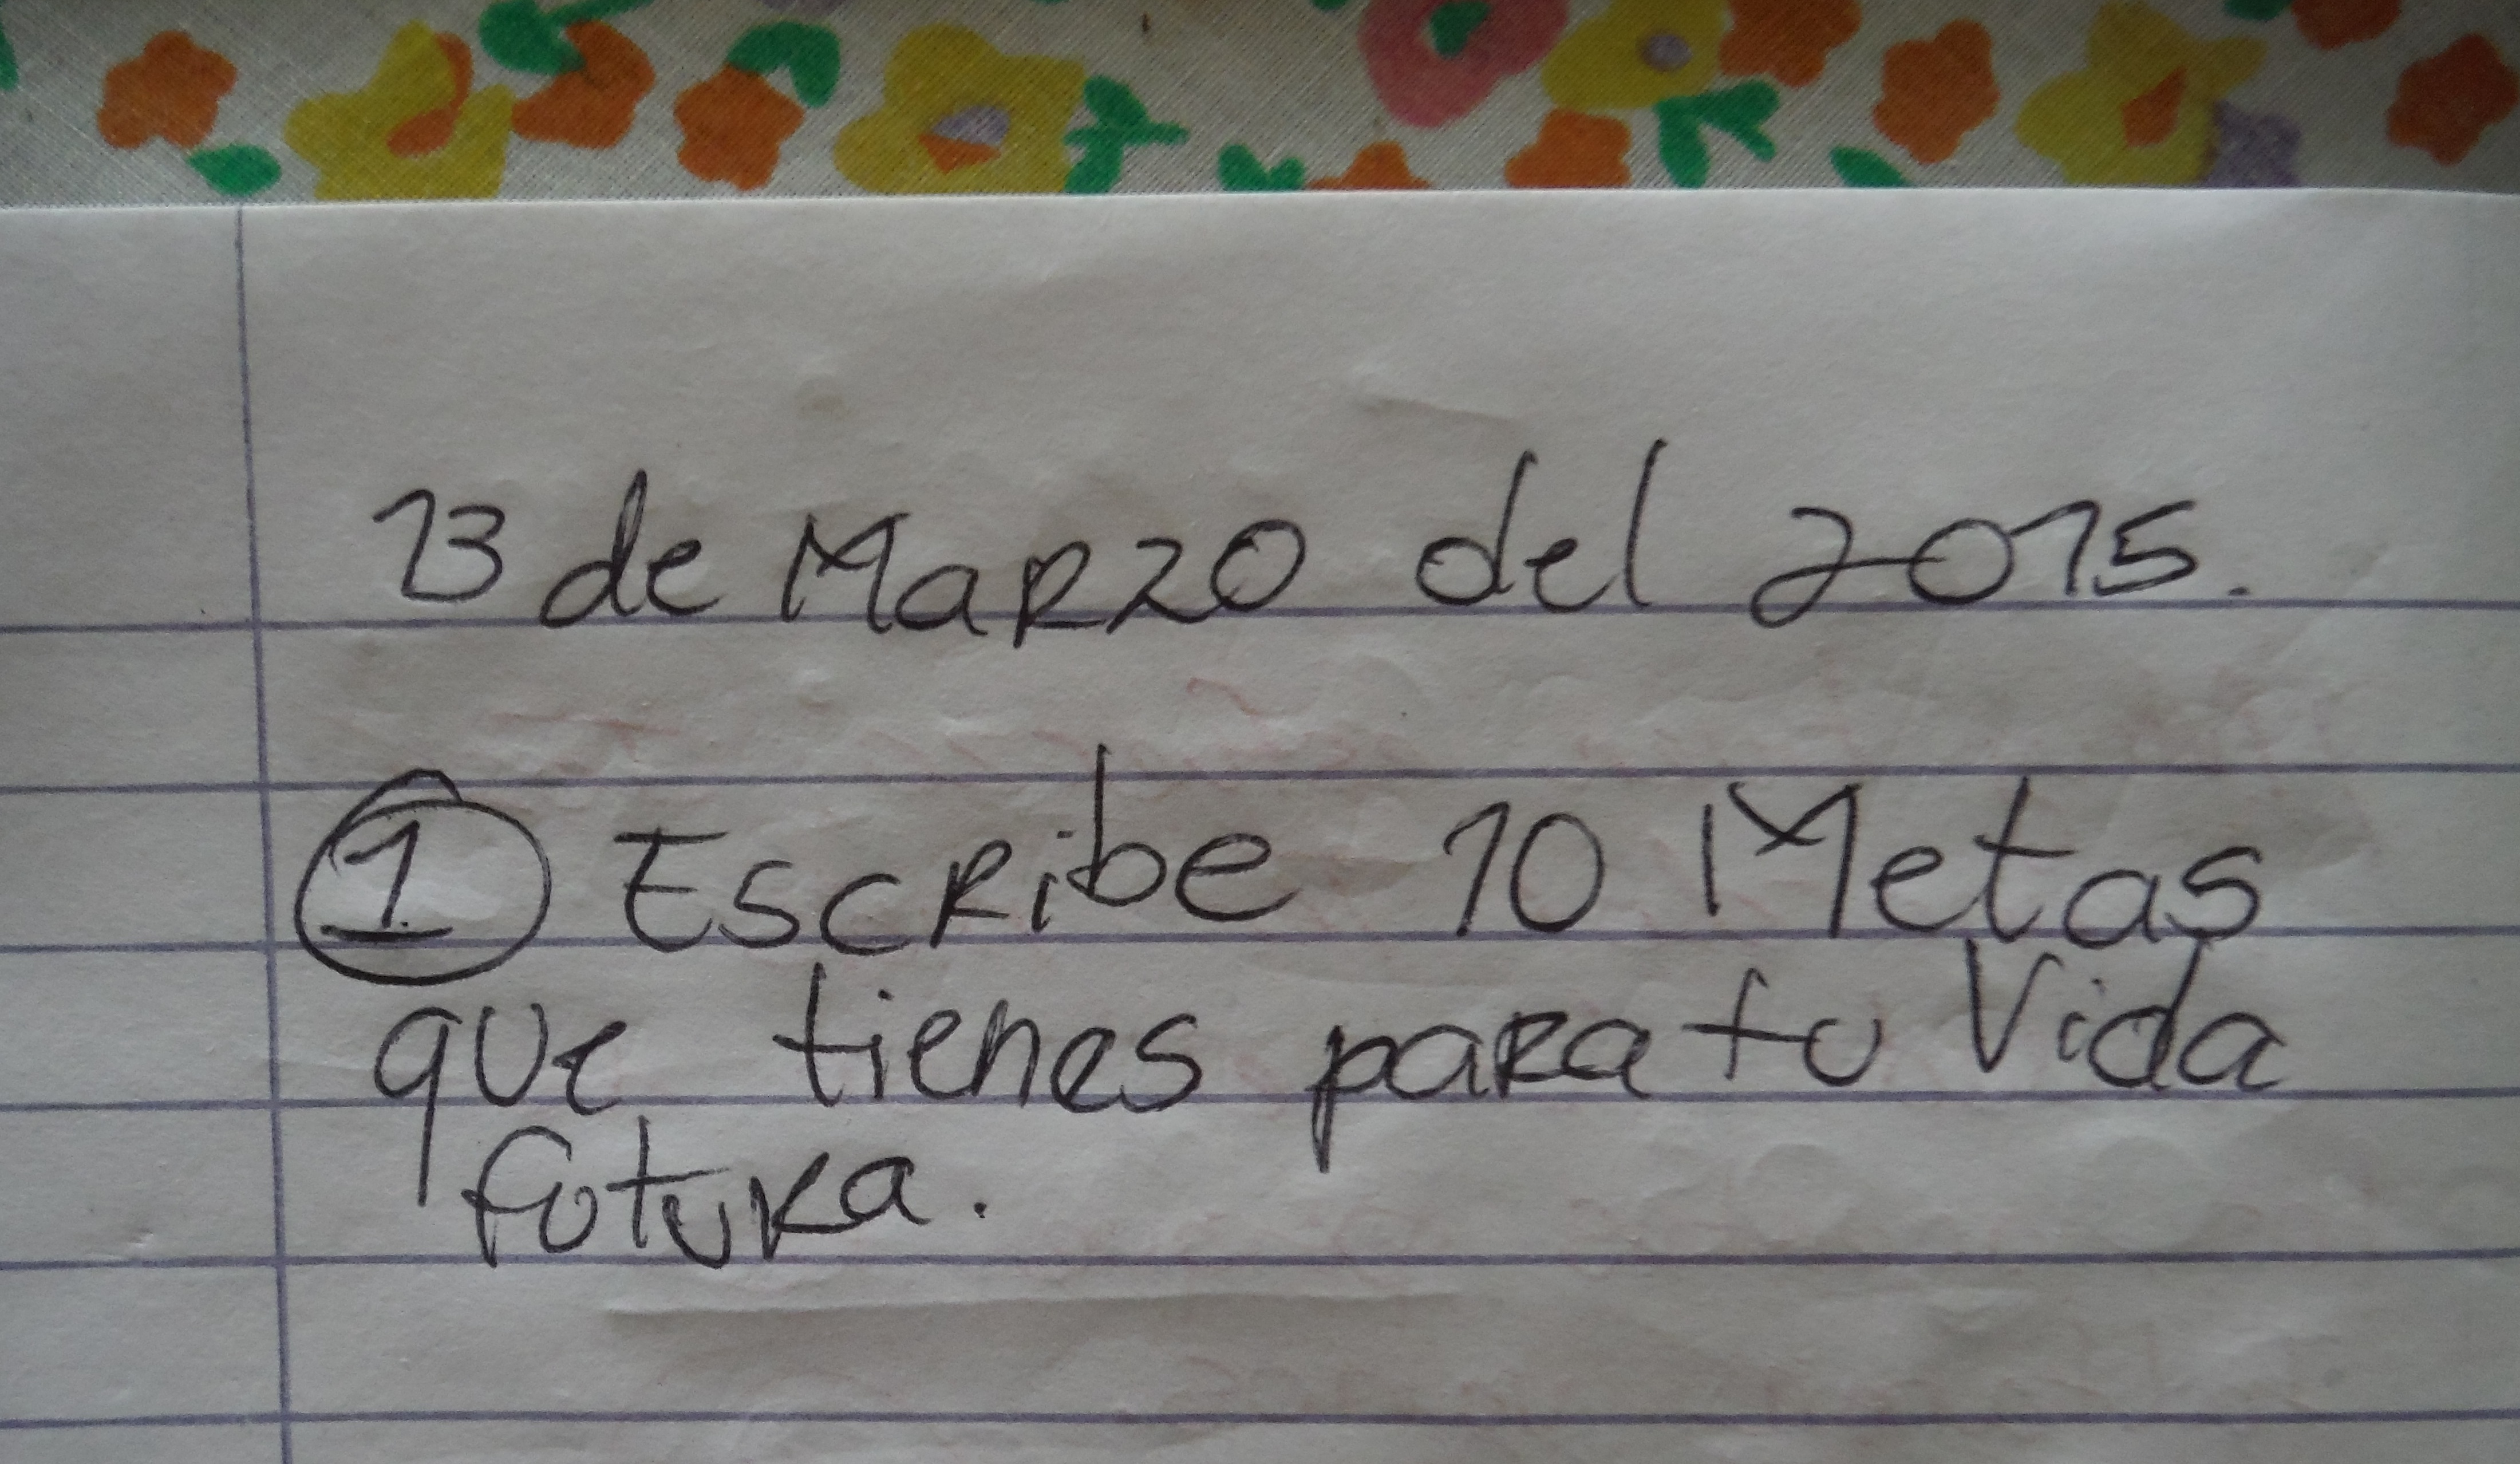 13 de Marzo del 2015.
1 Escribe 10 Metas
que tienes para tu Vida
futura.